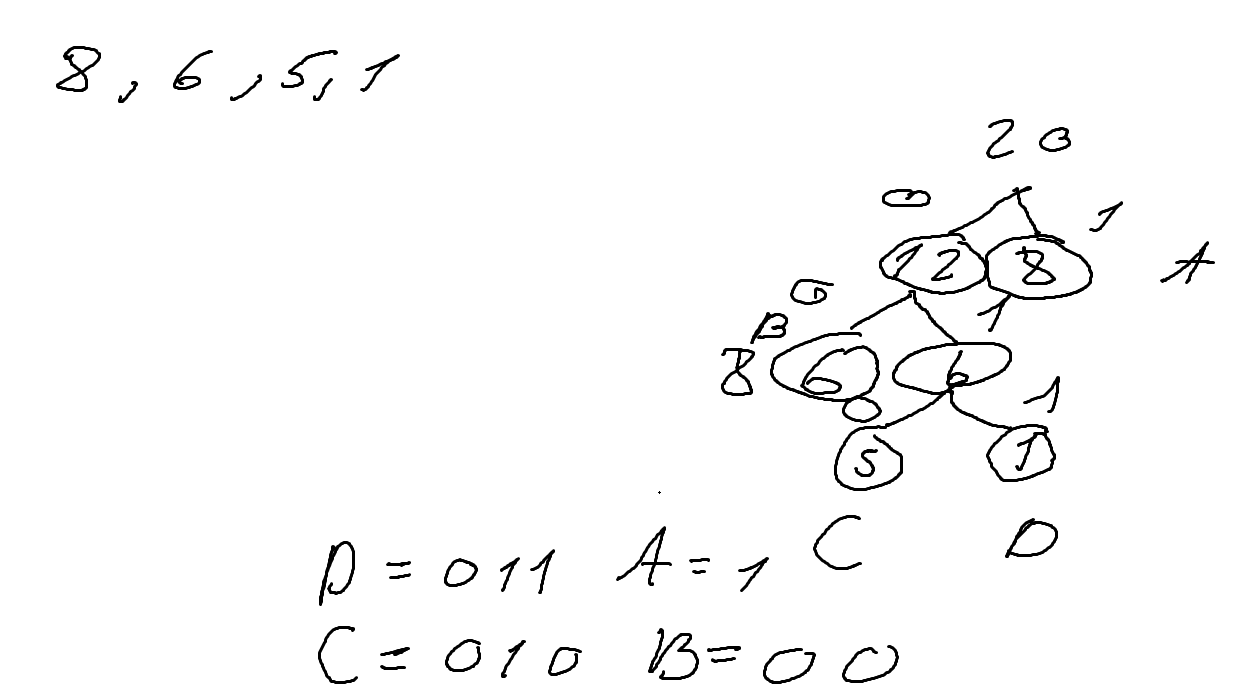 8, 6, 5, 1
20
0 1
12 8 A
0 1
B
8 6 6
0 1
5 1
C D
D = 011 A = 1
C = 010 B = 00